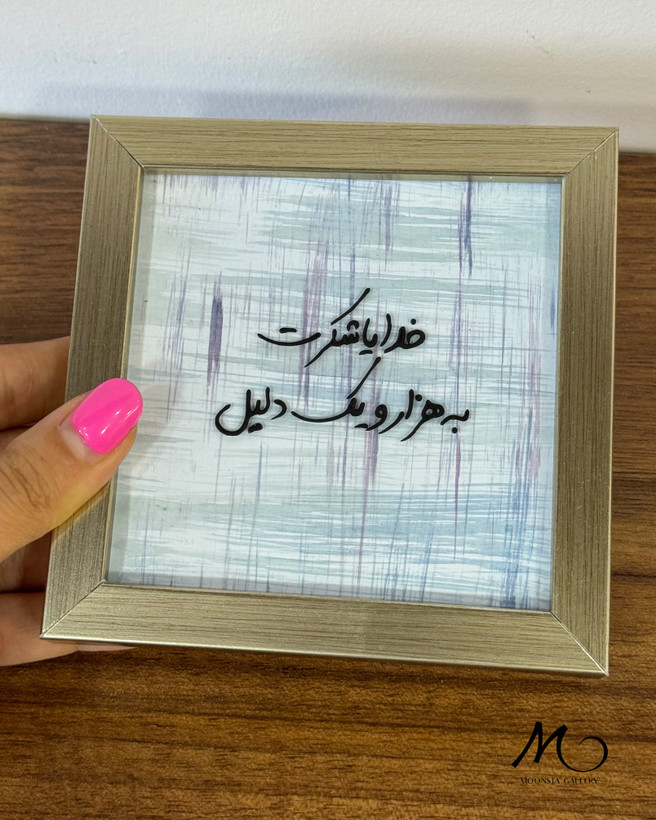 خدایا شکرت
به هزار و یک دلیل
MOONSTA GALLERY